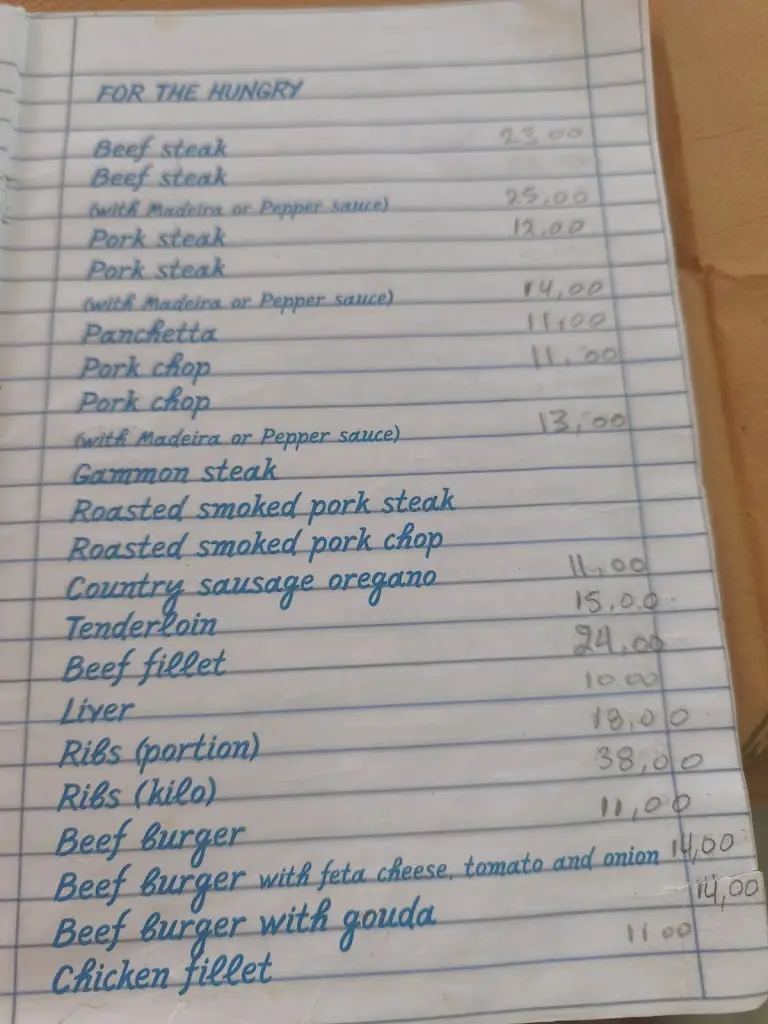 FOR THE HUNGRY
Beef steak 23.00
Beef steak
(with Madeira or Pepper sauce) 25.00
Pork steak 12.00
Pork steak
(with Madeira or Pepper sauce) 14,00
Panchetta 11,00
Pork chop 11,00
Pork chop
(with Madeira or Pepper sauce) 13,00
Gammon steak
Roasted smoked pork steak
Roasted smoked pork chop
Country sausage oregano 11,00
Tenderloin 15,00
Beef fillet 24,00
Liver 10.00
Ribs (portion) 18,00
Ribs (kilo) 38,00
Beef burger 11,00
Beef burger with feta cheese, tomato and onion 14,00
Beef burger with gouda 14,00
Chicken fillet 11 00